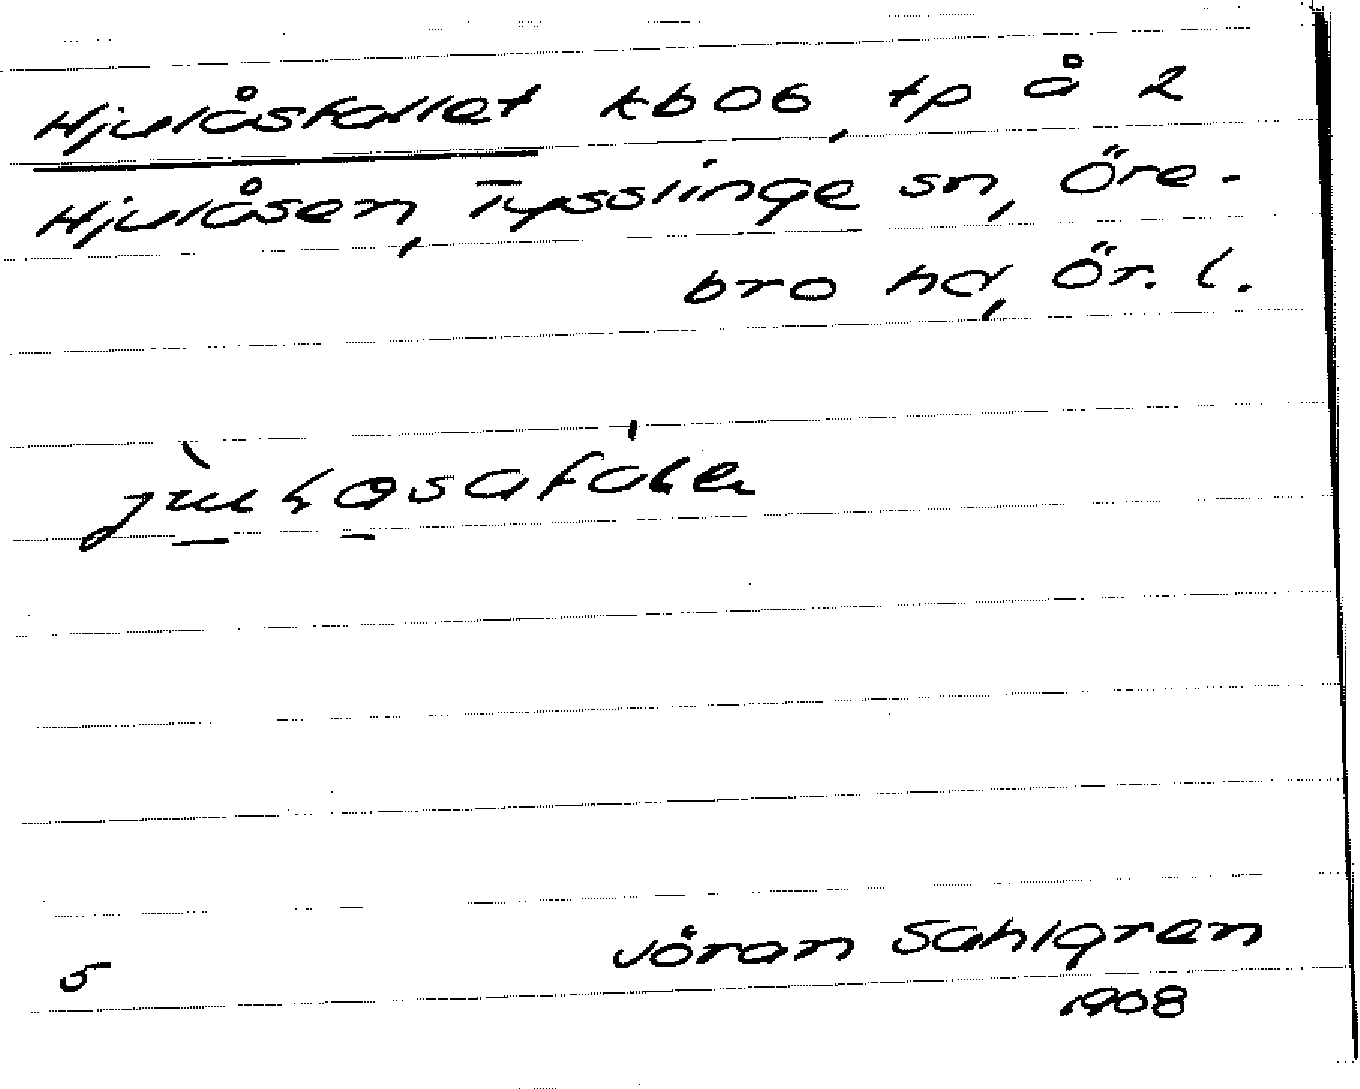 Hjulåsfallet tb 06, tp å 2
Hjulåsen, Tysslinge sn, Öre-
bro hd, Ör. l.
5
Jöran Sahlgren
1908